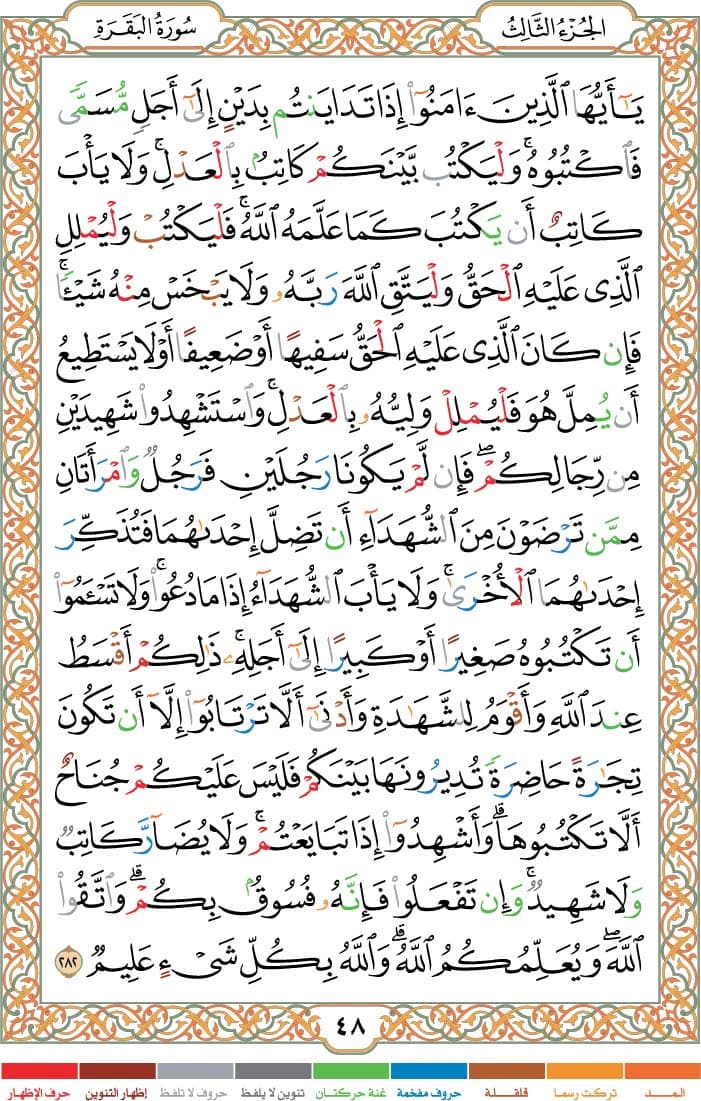 الجُزْءُ الثَّالِثُ
سُورَةُ البَقَرَةِ
يَٰٓأَيُّهَا ٱلَّذِينَ ءَامَنُوٓا۟ إِذَا تَدَايَنتُم بِدَيْنٍ إِلَىٰٓ أَجَلٍ مُّسَمًّى
فَٱكْتُبُوهُ ۚ وَلْيَكْتُب بَّيْنَكُمْ كَاتِبٌۢ بِٱلْعَدْلِ ۚ وَلَا يَأْبَ
كَاتِبٌ أَن يَكْتُبَ كَمَا عَلَّمَهُ ٱللَّهُ ۚ فَلْيَكْتُبْ وَلْيُمْلِلِ
ٱلَّذِى عَلَيْهِ ٱلْحَقُّ وَلْيَتَّقِ ٱللَّهَ رَبَّهُۥ وَلَا يَبْخَسْ مِنْهُ شَيْـًٔا ۚ
فَإِن كَانَ ٱلَّذِى عَلَيْهِ ٱلْحَقُّ سَفِيهًا أَوْ ضَعِيفًا أَوْ لَا يَسْتَطِيعُ
أَن يُمِلَّ هُوَ فَلْيُمْلِلْ وَلِيُّهُۥ بِٱلْعَدْلِ ۚ وَٱسْتَشْهِدُوا۟ شَهِيدَيْنِ
مِن رِّجَالِكُمْ ۖ فَإِن لَّمْ يَكُونَا رَجُلَيْنِ فَرَجُلٌ وَٱمْرَأَتَانِ
مِمَّن تَرْضَوْنَ مِنَ ٱلشُّهَدَآءِ أَن تَضِلَّ إِحْدَىٰهُمَا فَتُذَكِّرَ
إِحْدَىٰهُمَا ٱلْأُخْرَىٰ ۚ وَلَا يَأْبَ ٱلشُّهَدَآءُ إِذَا مَا دُعُوا۟ ۚ وَلَا تَسْـَٔمُوٓا۟
أَن تَكْتُبُوهُ صَغِيرًا أَوْ كَبِيرًا إِلَىٰٓ أَجَلِهِۦ ۚ ذَٰلِكُمْ أَقْسَطُ
عِندَ ٱللَّهِ وَأَقْوَمُ لِلشَّهَٰدَةِ وَأَدْنَىٰٓ أَلَّا تَرْتَابُوٓا۟ ۖ إِلَّآ أَن تَكُونَ
تِجَٰرَةً حَاضِرَةً تُدِيرُونَهَا بَيْنَكُمْ فَلَيْسَ عَلَيْكُمْ جُنَاحٌ
أَلَّا تَكْتُبُوهَا ۗ وَأَشْهِدُوٓا۟ إِذَا تَبَايَعْتُمْ ۚ وَلَا يُضَآرَّ كَاتِبٌ
وَلَا شَهِيدٌ ۚ وَإِن تَفْعَلُوا۟ فَإِنَّهُۥ فُسُوقٌۢ بِكُمْ ۗ وَٱتَّقُوا۟
ٱللَّهَ ۖ وَيُعَلِّمُكُمُ ٱللَّهُ ۗ وَٱللَّهُ بِكُلِّ شَىْءٍ عَلِيمٌ ٢٨٢
٤٨
المــــد
تركت رسما
قلقـــلة
حروف مفخمة
غنة حركتان
تنوين لا يلفظ
حروف لا تلفظ
إظهار التنوين
حرف الإظهار